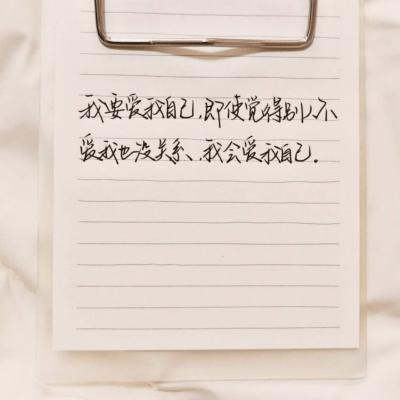 我要爱我自己,即使觉得别人不
爱我也没关系、我会爱我自己.